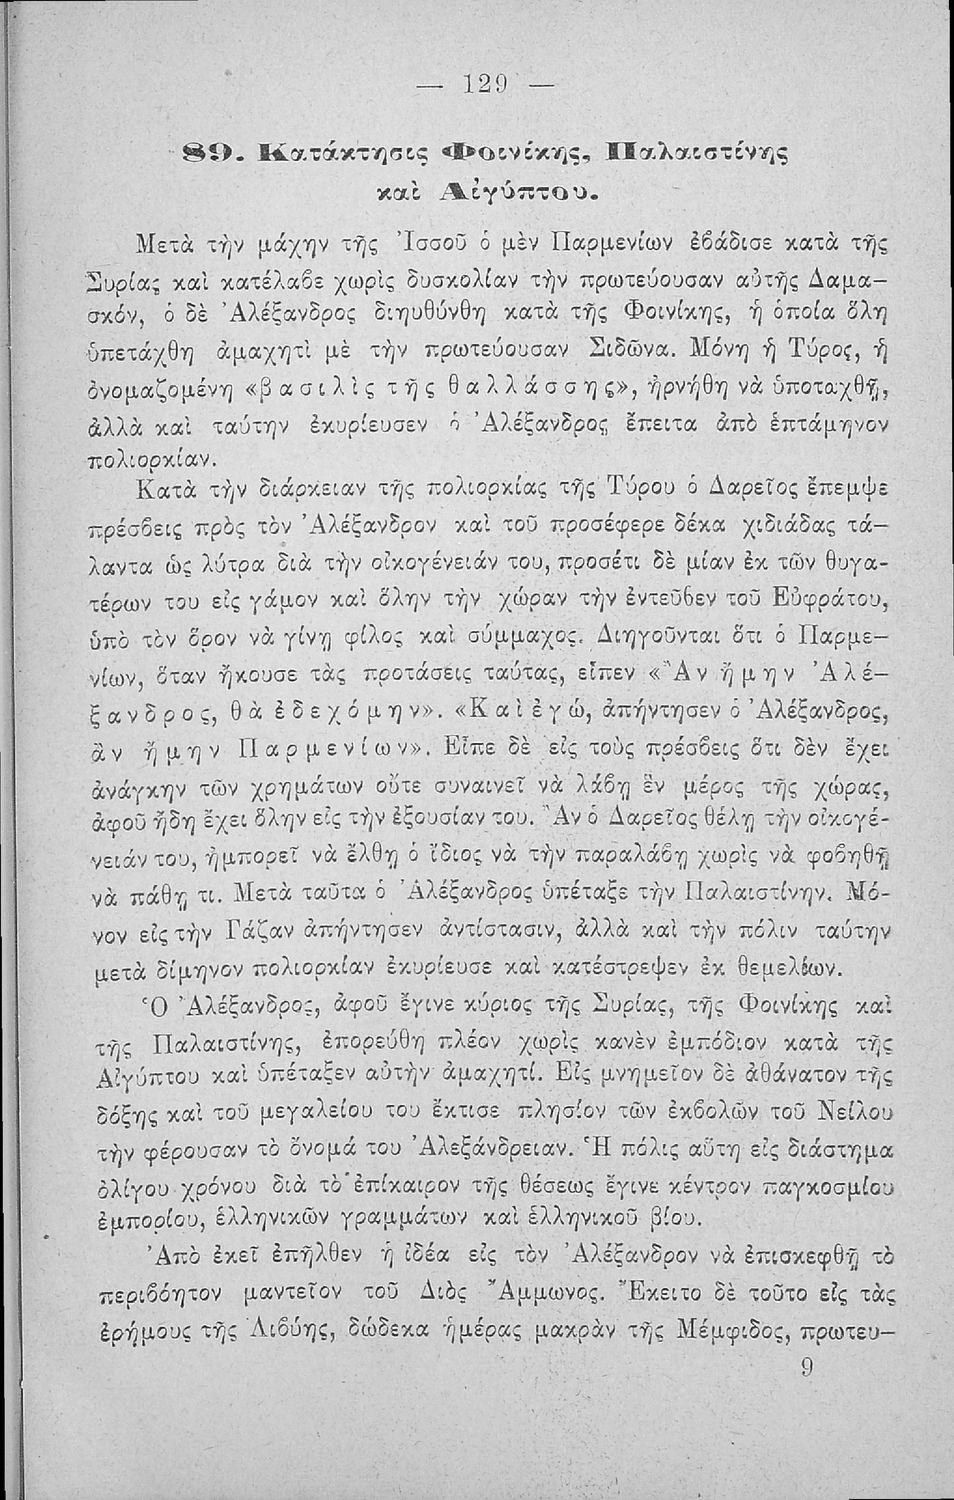 — 129 —
89. Κατάκτησις Φοινίκης, Παλαιστίνης
καὶ Αἰγύπτου.
Μετὰ τὴν μάχην τῆς Ἰσσοῦ ὁ μὲν Παρμενίων ἐβάδισε κατὰ τῆς
Συρίας καὶ κατέλαβε χωρὶς δυσκολίαν τὴν πρωτεύουσαν αὐτῆς Δαμα—
σκόν, ὁ δὲ Ἀλέξανδρος διηυθύνθη κατὰ τῆς Φοινίκης, ἡ ὁποία ὅλη
ὑπετάχθη ἀμαχητὶ μὲ τὴν πρωτεύουσαν Σιδῶνα. Μόνη ἡ Τύρος, ἡ
ὀνομαζομένη «β α σ ι λ ὶ ς τ ῆ ς θ α λ λ ά σ σ η ς», ἠρνήθη νὰ ὑποταχθῇ,
ἀλλὰ καὶ ταύτην ἐκυρίευσεν ὁ Ἀλέξανδρος ἔπειτα ἀπὸ ἑπτάμηνον
πολιορκίαν.
Κατὰ τὴν διάρκειαν τῆς πολιορκίας τῆς Τύρου ὁ Δαρεῖος ἔπεμψε
πρέσβεις πρὸς τὸν Ἀλέξανδρον καὶ τοῦ προσέφερε δέκα χιδιάδας τά—
λαντα ὡς λύτρα διὰ τὴν οἰκογένειάν του, προσέτι δὲ μίαν ἐκ τῶν θυγα-
τέρων του εἰς γάμον καὶ ὅλην τὴν χώραν τὴν ἐντεῦθεν τοῦ Εὐφράτου,
ὑπὸ τὸν ὅρον νὰ γίνῃ φίλος καὶ σύμμαχος. Διηγοῦνται ὅτι ὁ Παρμε—
νίων, ὅταν ἤκουσε τὰς προτάσεις ταύτας, εἶπεν «Ἂν ἤ μ η ν Ἀ λ έ—
ξ α ν δ ρ ο ς, θ ὰ ἐ δ ε χ ό μ η ν». «Κ α ὶ ἐ γ ώ, ἀπήντησεν ὁ Ἀλέξανδρος,
ἂ ν ἤ μ η ν Π α ρ μ ε ν ί ω ν». Εἶπε δὲ εἰς τοὺς πρέσβεις ὅτι δὲν ἔχει
ἀνάγκην τῶν χρημάτων οὔτε συναινεῖ νὰ λάβῃ ἓν μέρος τῆς χώρας,
ἀφοῦ ἤδη ἔχει ὅλην εἰς τὴν ἐξουσίαν του. Ἂν ὁ Δαρεῖος θέλῃ τὴν οἰκογέ-
νειάν του, ἠμπορεῖ νὰ ἔλθῃ ὁ ἴδιος νὰ τὴν παραλάβῃ χωρὶς νὰ φοβηθῇ
νὰ πάθῃ τι. Μετὰ ταῦτα ὁ Ἀλέξανδρος ὑπέταξε τὴν Παλαιστίνην. Μό-
νον εἰς τὴν Γάζαν ἀπήντησεν ἀντίστασιν, ἀλλὰ καὶ τὴν πόλιν ταύτην
μετὰ δίμηνον πολιορκίαν ἐκυρίευσε καὶ κατέστρεψεν ἐκ θεμελίων.
Ὁ Ἀλέξανδρος, ἀφοῦ ἔγινε κύριος τῆς Συρίας, τῆς Φοινίκης καὶ
τῆς Παλαιστίνης, ἐπορεύθη πλέον χωρὶς κανὲν ἐμπόδιον κατὰ τῆς
Αἰγύπτου καὶ ὑπέταξεν αὐτὴν ἀμαχητί. Εἰς μνημεῖον δὲ ἀθάνατον τῆς
δόξης καὶ τοῦ μεγαλείου του ἔκτισε πλησίον τῶν ἐκβολῶν τοῦ Νείλου
τὴν φέρουσαν τὸ ὄνομά του Ἀλεξάνδρειαν. Ἡ πόλις αὕτη εἰς διάστημα
ὀλίγου χρόνου διὰ τὸ ἐπίκαιρον τῆς θέσεως ἔγινε κέντρον παγκοσμίου
ἐμπορίου, ἑλληνικῶν γραμμάτων καὶ ἑλληνικοῦ βίου.
Ἀπὸ ἐκεῖ ἐπῆλθεν ἡ ἰδέα εἰς τὸν Ἀλέξανδρον νὰ ἐπισκεφθῇ τὸ
περιβόητον μαντεῖον τοῦ Διὸς Ἄμμωνος. Ἔκειτο δὲ τοῦτο εἰς τὰς
ἐρήμους τῆς Λιβύης, δώδεκα ἡμέρας μακρὰν τῆς Μέμφιδος, πρωτευ—
9